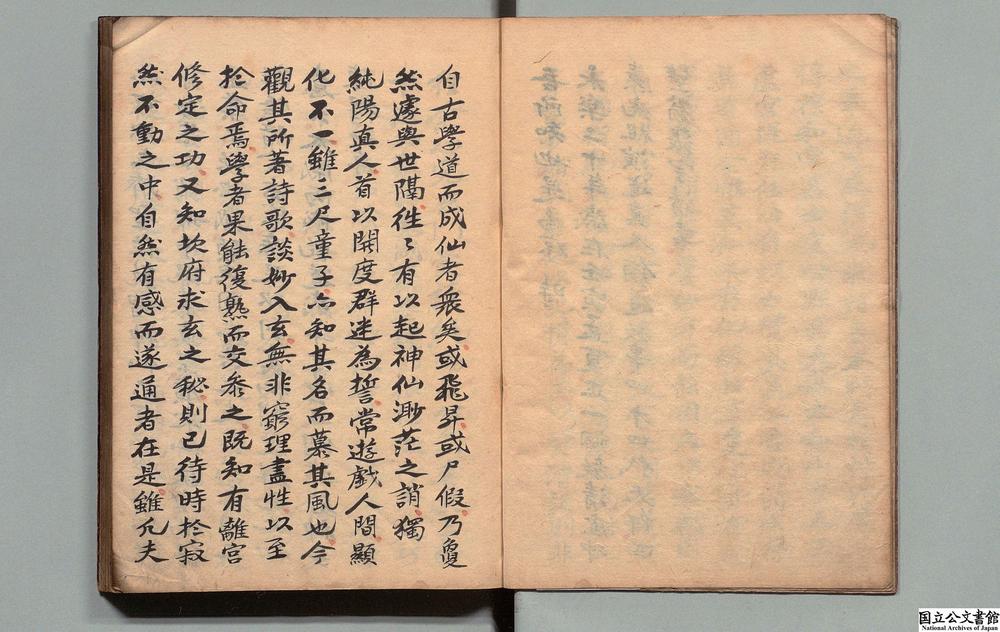 自古學道而成仙者衆矣或飛昇或尸假乃夐
然遽與世隔徃〻有以起神仙渺茫之誚獨
純陽真人首以開度群迷為誓常遊戲人間顯
化不一雖三尺童子亦知其名而慕其風也今
觀其所著詩歌談妙入玄無非窮理盡性以至
於命焉學者果能復熟而交叅之既知有離宮
修定之功又知坎府求玄之秘則已待時於寂
然不動之中自然有感而遂通者在是雖凡夫
国立公文書館
National Archives of Japan